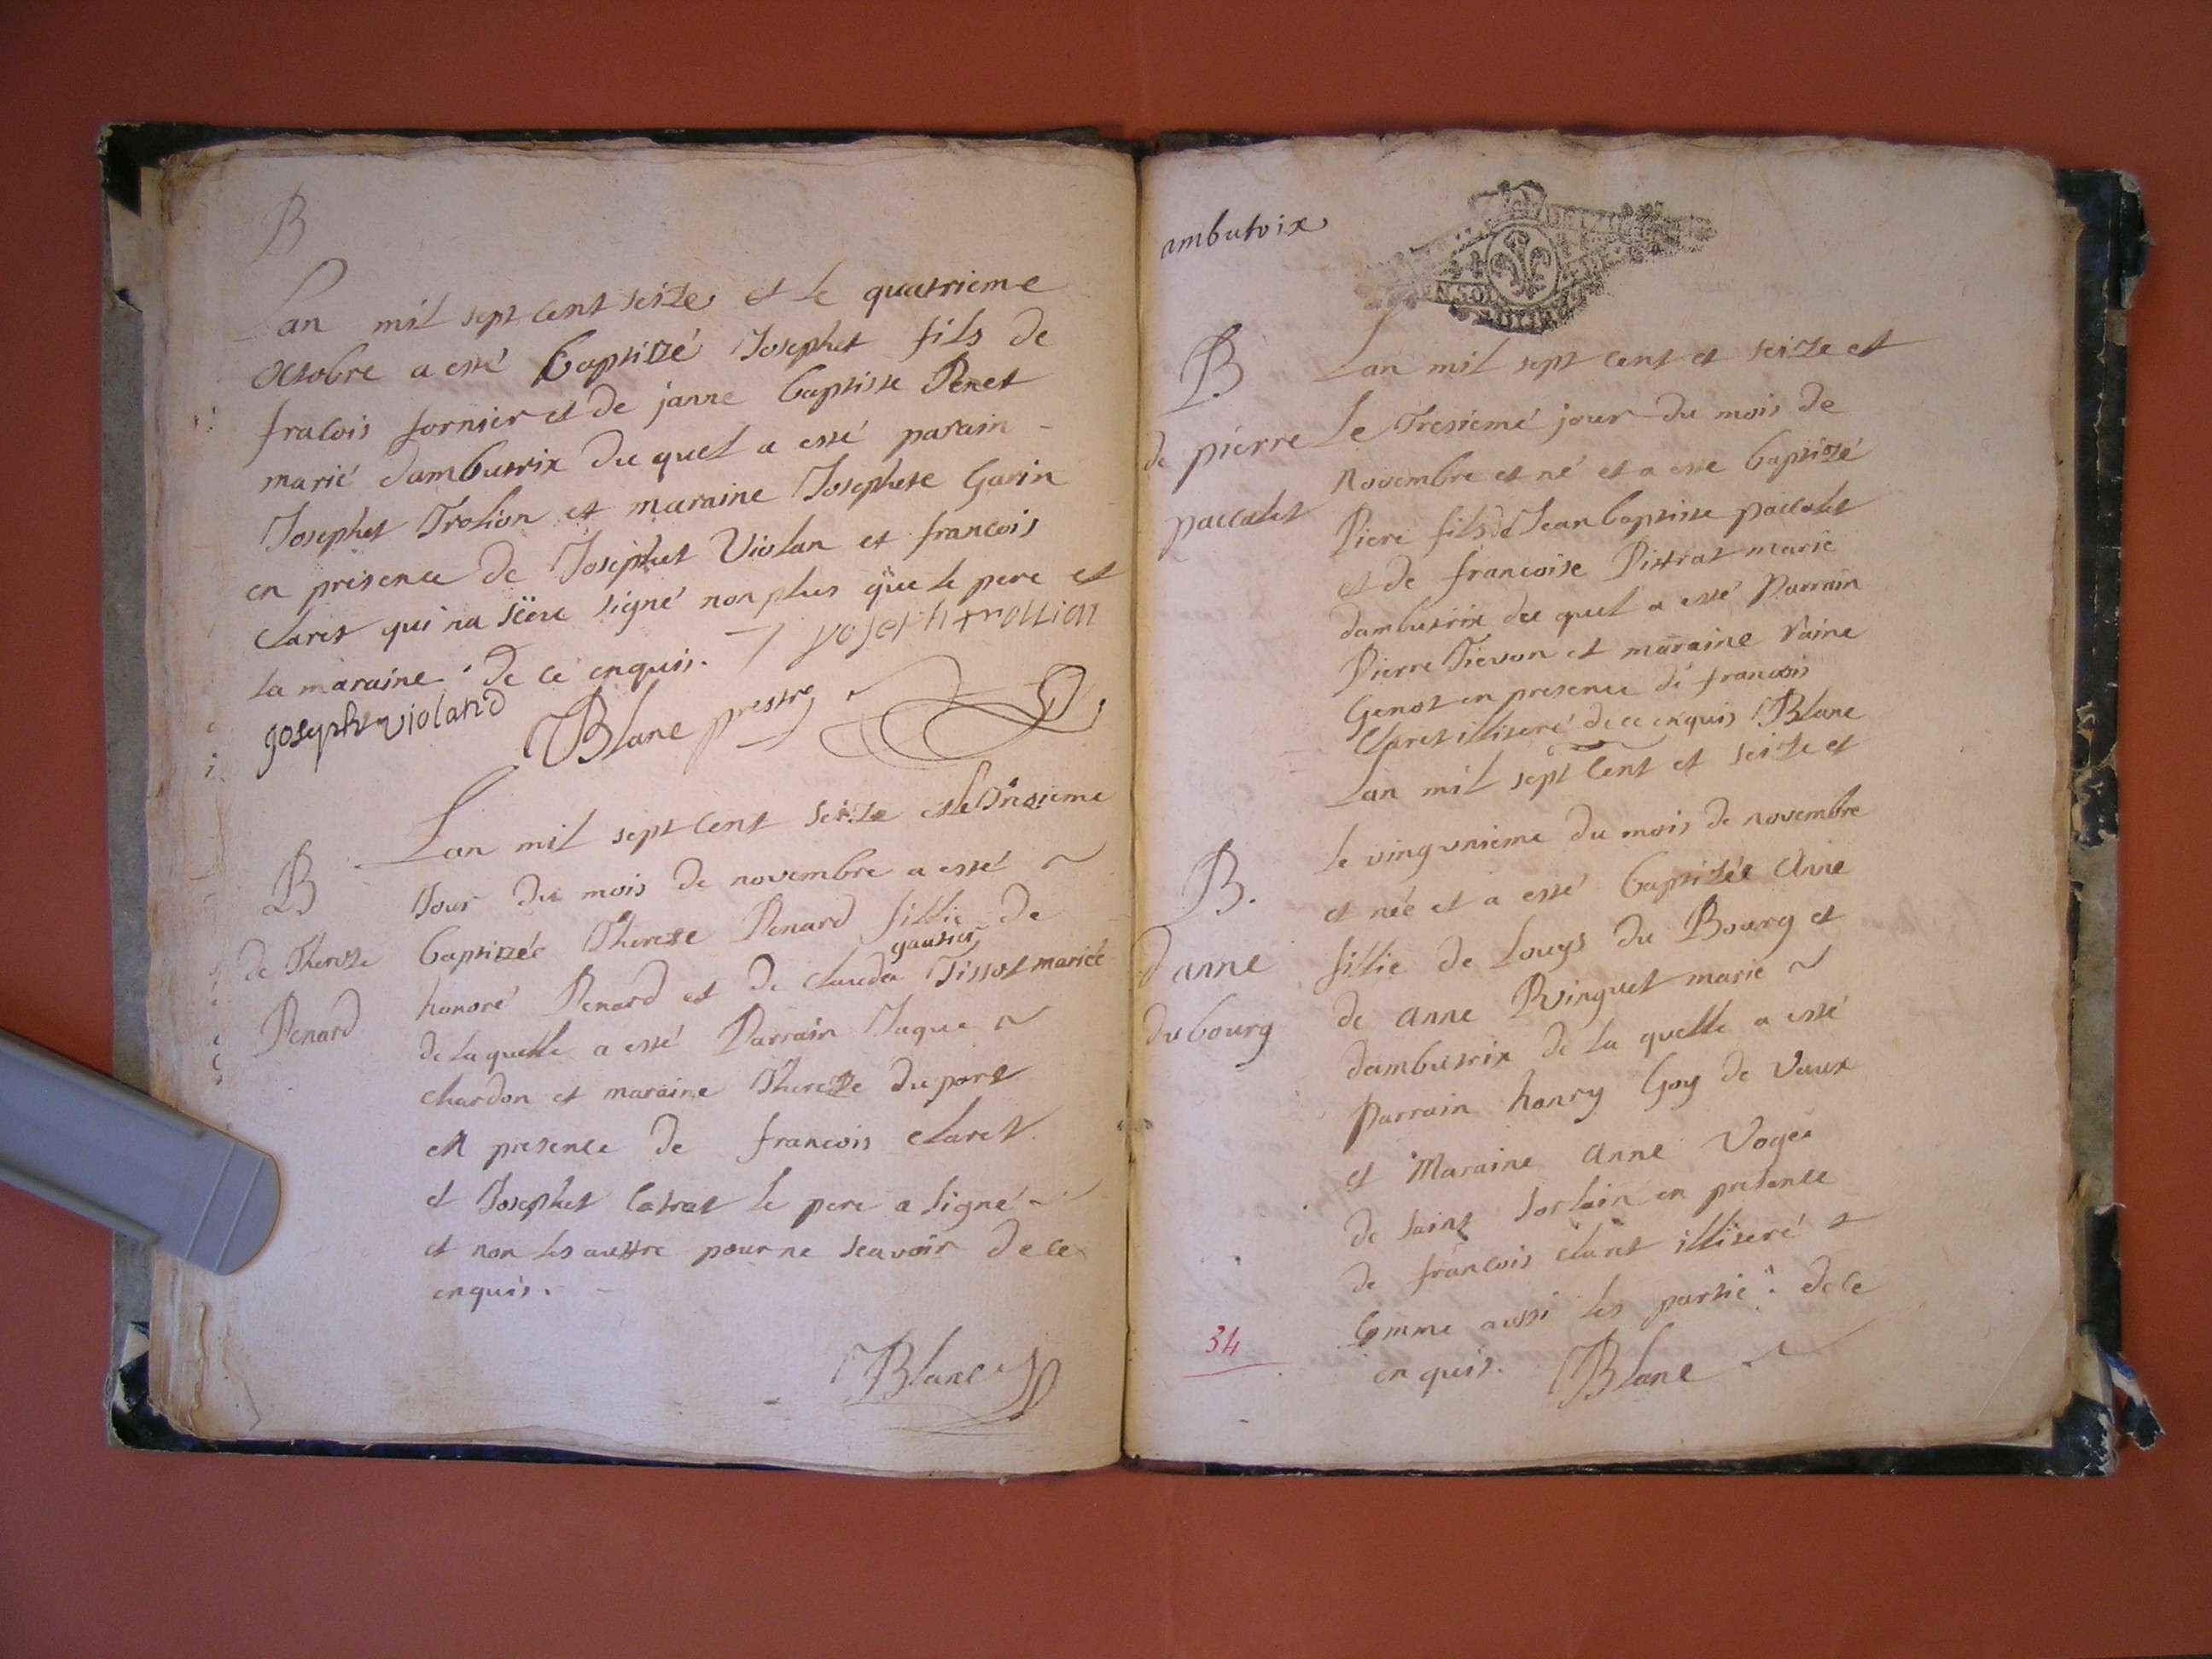 B
Lan mil sept cent seize et le quatrieme
Octobre a esté Baptizzé Josephet fils de
fracois fornier et de janne baptiste Penet
marié dambutrix du quel a esté parain
Josephet Trolion et maraine Josephete Garin
en presence de Josephet Violan et francois
Claret qui na signé non plus que le pere et
la maraine de ce enquis. Joseph trollion
Joseph violand
Blanc prestre
Lan mil sept cent seize et le
B
Jour du mois de novembre a esté
de Therezze baptizzée Therese Penard fillie de
gautier
honoré Penard et de clauda Tissot mariée
Penard
de laquelle a esté Parrain Jaque
chardon et maraine Therezze du port
en presence de francois claret
et Josephet Catrat le pere a signé
et non les auttre pour ne scavoir de ce
enquis.
Blanc
ambutrix
B
Lan mil sept cent et seizze et
de pierre
le tresiemé jour du mois de
Novembre et né et a esté baptizzé
paccalet
Piere fils de Jean baptiste paccalet
et de francoise Pittrat marié
dambutrix du quel a esté Parrain
Pierre Tievon et maraine
Genot en presence de francois
Claret illiteré de ce enquis Blanc
Lan mil sept cent et seize et
le vingunieme du mois de novembre
B.
et née et a esté baptizée Anne
danne
fillie de Louys du Bourg et
dubourg
de anne Ruinguet marié
dambutrix de la quelle a esté
parrain hanry Goy de Vaux
et Maraine anne Voger
de saint sorlain en presence
de francois claret illiteré
Comme aussi les partie. de ce
34
enquis. Blanc